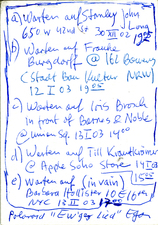 a) Warten auf Stanley John
650 W 42nd St 30 XII 02 Long 1905
b) Warten auf Frauke
Burgdorff @ ibl Bowery
(Stadt Bau Kultur (NRW)
12 I 03 1905
c) Warten auf Iris Brosch
in front of Barnes & Noble
@ Union Sq 13 I 03 1900
d) Warten auf Till Krautkrämer
@ Apple Soho Store 14 I 03
e) Warten (in vain) 1505
Barbara Hollister 10 E 16th
NYC 13 II 03 1700
Polaroid "Ewiges Lied"